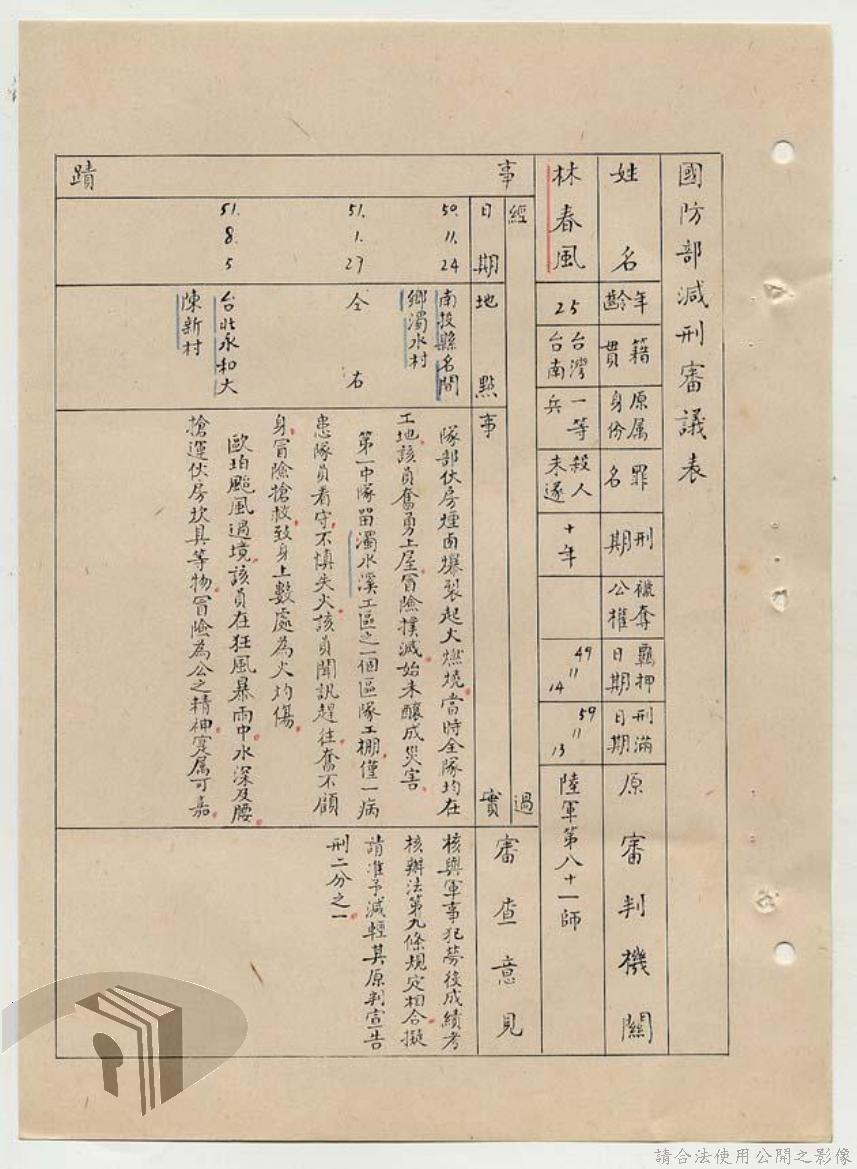 國防部減刑審議表
姓名
年齡
籍貫
原属身份
罪名
刑期
褫奪公權
羈押日期
刑滿日期
原審判機關
林春風
25
台灣台南
一等兵
殺人未遂
十年
49 11 14
59 11 13
陸軍第八十一師
事蹟
經過
日期
地點
事實
審查意見
50. 11. 24
南投縣名間
鄉濁水村
隊部伙房煙囱爆裂起火燃燒。當時全隊均在
工地。該員奮勇上屋。冒險撲滅。始未釀成災害。
51. 1. 27
仝右
第一中隊留濁水溪工區之一個區隊工棚。僅一病
患隊員看守。不慎失火。該員聞訊趕往。奮不顧
身。冒險搶救。致身上數處為火灼傷。
51. 8. 5
台北永和大
陳新村
歐珀颱風過境。該員在狂風暴雨中。水深及腰。
搶運伙房炊具等物。冒險為公之精神。寔属可嘉。
核與軍事犯勞役成績考
核辦法第九條規定相合。擬
請准予減輕其原判宣告
刑二分之一。
請合法使用公開之影像